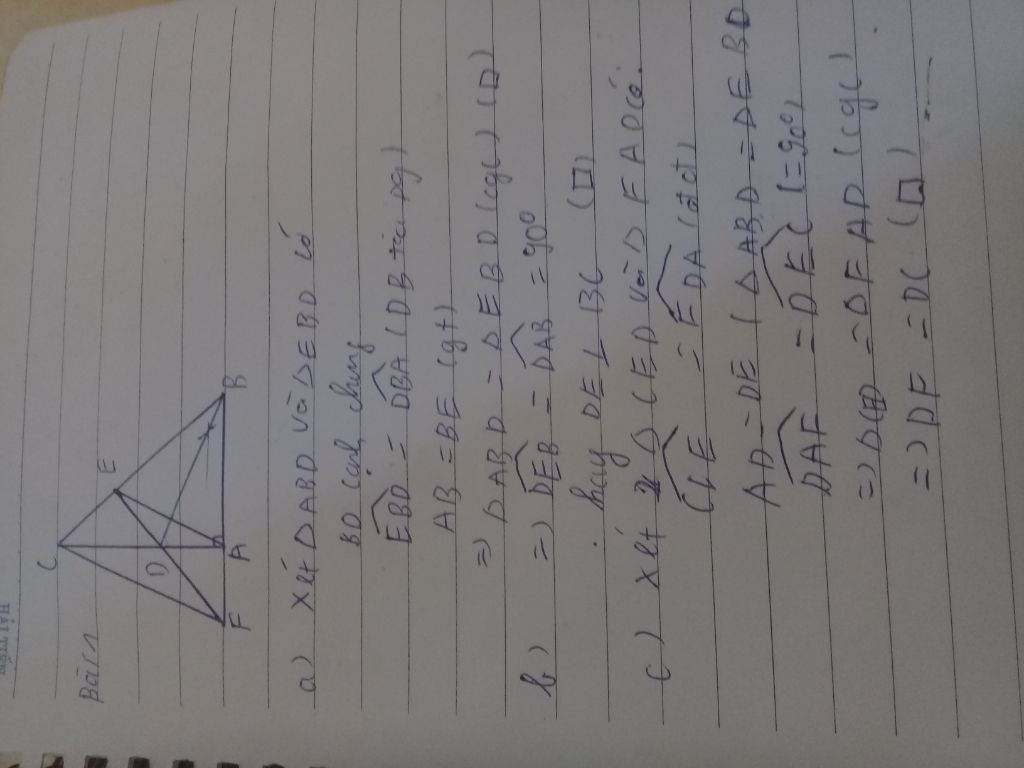 Bài 1
C
E
D
F A B
a) Xét ΔABD và ΔEBD có
BD cạnh chung
EBD = DBA (DB tia pg)
AB = BE (gt)
=) ΔABD = ΔEBD (cgc) (□)
b) =) DEB = DAB = 90°
hay DE ⊥ BC (□)
c) Xét 2 Δ CED và Δ FAD có.
= FDA (đđ)
AD = DE (ΔABD = ΔEBD
DAF = DEC (= 90°)
= ΔFAD (cgc)
=) DF = DC (□)